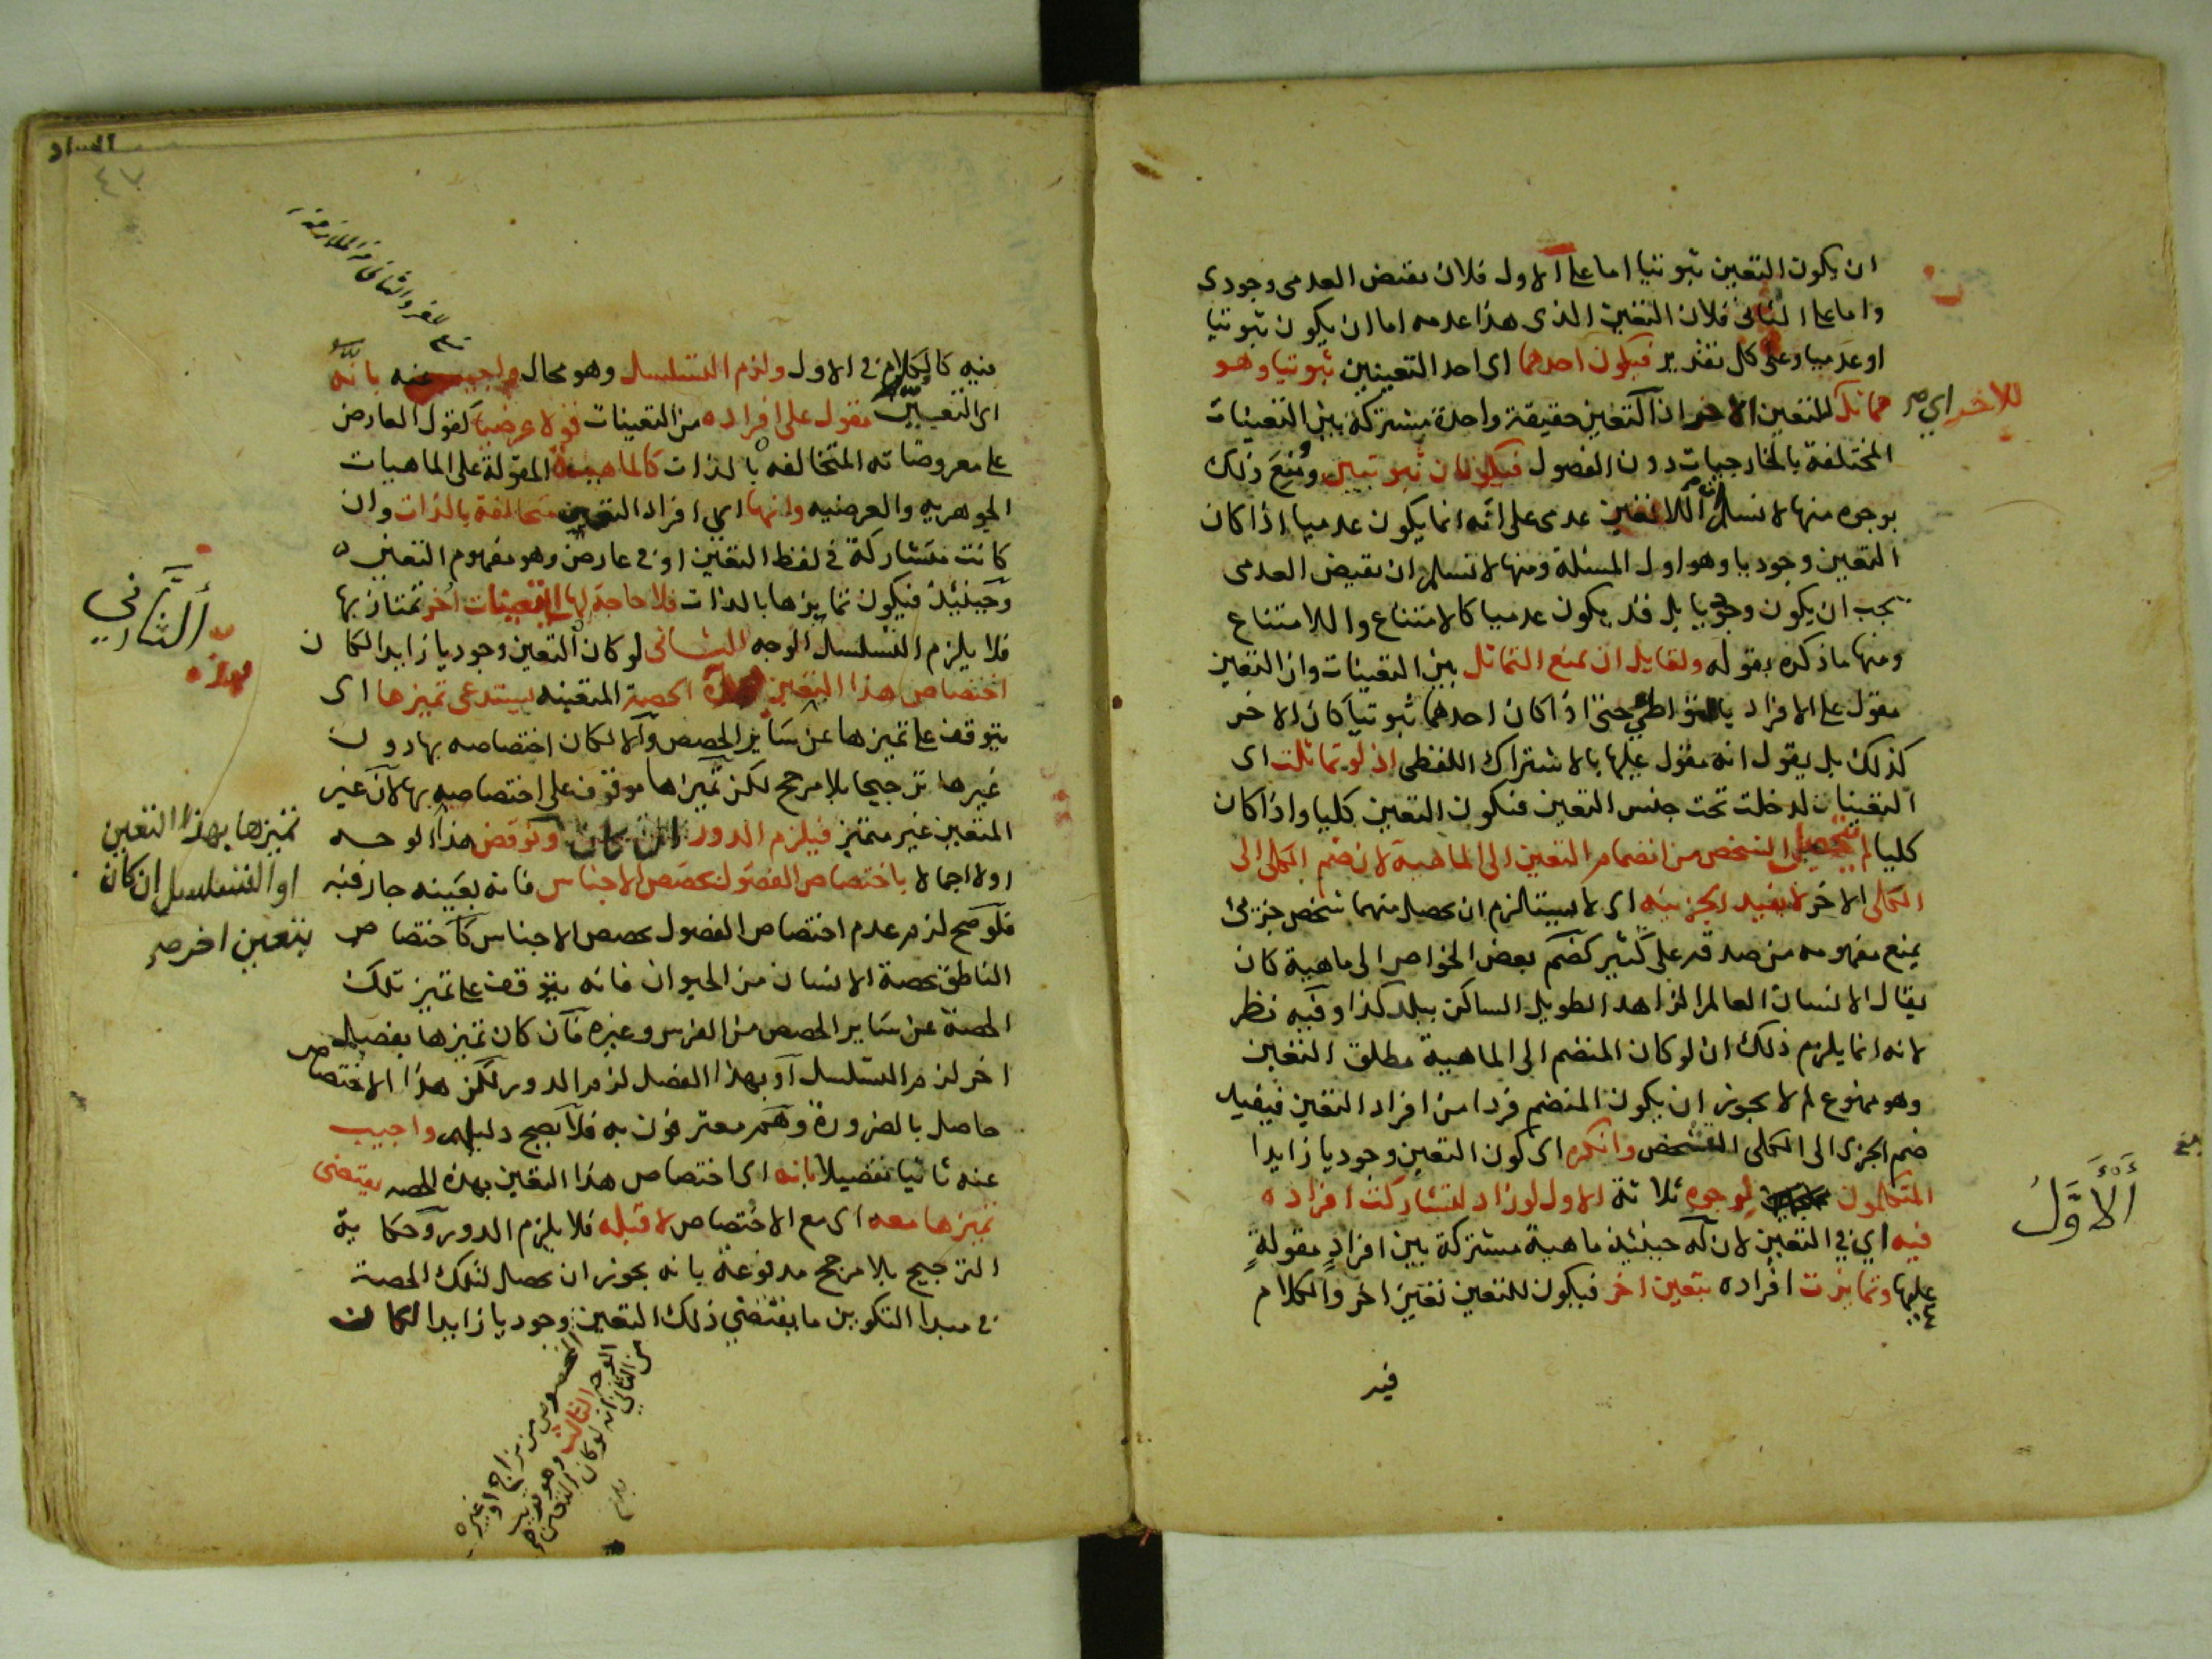 ان يكون التعين ثبوتيا اما على الاول فلان نقيض العدمى وجودى
واما على الثانى فلان التعين الذى هذا عدمه اما ان يكون ثبوتيا
او عدميا وعلى كل تقدير فيكون احدهما اى احد التعينين ثبوتيا وهو
للاخر اي
مماثل للتعين الاخر ان التعين حقيقة واحدة مشتركة بين التعينات
المختلفة بالخارجيات دون الفصول فيكونان ثبوتيين ومنع ذلك
بوجوه منها لا نسلم ان اللاتعين عدمى على انه انما يكون عدميا اذا كان
التعين وجوديا وهو اول المسئلة ومنها لا نسلم ان نقيض العدمى
يجب ان يكون وجوديا بل قد يكون عدميا كالامتناع واللاامتناع
ومنها ما ذكره بقوله ولقايل ان يمنع التماثل بين التعينات وان التعين
مقول على الافراد بالتواطى حتى اذا كان احدهما ثبوتيا كان الاخر
كذلك بل يقول انه مقول عليها بالاشتراك اللفظى اذ لو تماثلت اى
التعينات لدخلت تحت جنس التعين فيكون التعين كليا واذا كان
كليا لم يتحصل الشخص من انضمام التعين الى الماهية لان ضم الكلى الى
الكلى الاخر لا يفيد الجزئيه اى لا يستلزم ان يحصل منهما شخص جزئى
يمنع مفهومه من صدقه على كثير كضم بعض الخواص الى ماهية كان
يقال الانسان العالم الزاهد الطويل الساكن ببلد كذا وفيه نظر
لانه انما يلزم ذلك ان لو كان المنضم الى الماهية مطلق التعين
وهو ممنوع لم لا يجوز ان يكون المنضم فردا من افراد التعين فيفيد
ضم الجزئ الى الكلى التشخص وانكره اى كون التعين وجوديا زايدا
المتكلمون لوجوه ثلاثة الاول لو زاد لتشاركت افراده
الأول
فيه اي في التعين لانه حينئذ ماهية مشتركة بين افراد مقولة
عليها وتمايزت افراده بتعين اخر فيكون للتعين تعين اخر والكلام
فيه
فيه كالكلام في الاول ولزم التسلسل وهو محال واجيب عنه بانه
اى التعين مقول على افراده من التعينات قولا عرضيا كقول العارض
على معروضاته المتخالفه بالذات كالماهية المقولة على الماهيات
الجوهريه والعرضيه وانها اي افراد التعين متخالفة بالذات وان
كانت متشاركة في لفظ التعين او في عارض وهو مفهوم التعين
وحينئذ فيكون تمايزها بالذات فلا حاجة لها الى تعينات اخر تمتاز بها
الثاني
فلا يلزم التسلسل الوجه الثانى لو كان التعين وجوديا زايدا لكان
اختصاص هذا التعين بهذه الحصة المتعينه يستدعى تميزها اى
يتوقف على تميزها عن ساير الحصص والا لكان اختصاصه بها دون
غيرها ترجيحا بلا مرجح لكن تميزها موقوف على اختصاصه بها لان غير
المتعين غير متميز فيلزم الدور ان كان ونوقض هذا الوجه
تميزها بهذا التعين
او التسلسل ان كان
بتعين اخر صح
اولا اجمالا باختصاص الفصول بحصص الاجناس فانه بعينه جار فيه
فلو صح لزم عدم اختصاص الفصول بحصص الاجناس كاختصاص
الناطق بحصة الانسان من الحيوان فانه يتوقف على تميز تلك
الحصة عن ساير الحصص من الفرس وغيره فان كان تميزها بفصل
اخر لزم التسلسل او بهذا الفصل لزم الدور لكن هذا الاختصاص
حاصل بالضرورة وهم معترفون به فلا يصح دليلهم واجيب
عنه ثانيا تفصيلا بانه اى اختصاص هذا التعين بهذه الحصه يقتضى
تميزها معه اى مع الاختصاص لا قبله فلا يلزم الدور وحكاية
الترجيح بلا مرجح مدفوعة بانه يجوز ان يحصل لتلك الحصة
في مبدا التكوين ما يقتضي ذلك التعين وجوديا زايدا لكان
المخصوص من مزاج او غيره
الوجه الثالث وهو قريب
من الثاني انه لو كان التعين